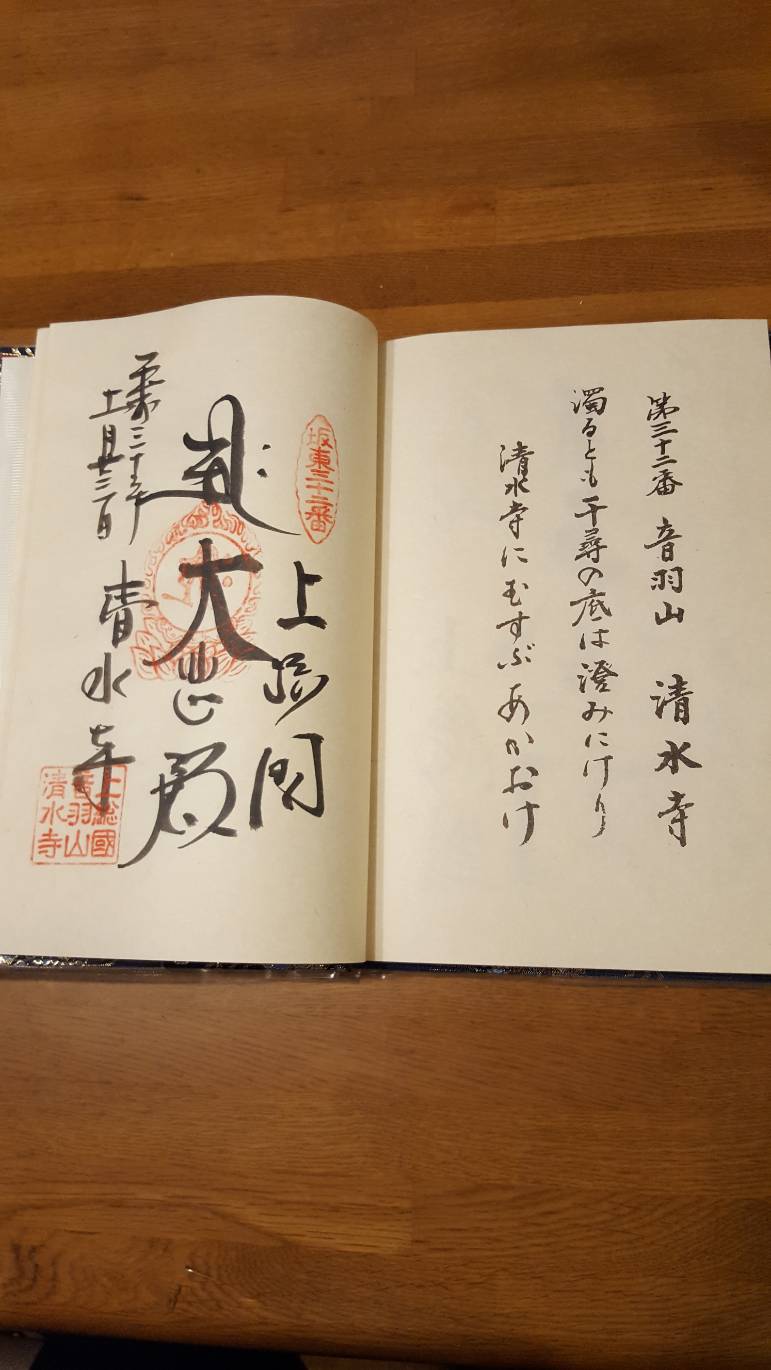 第三十二番 音羽山 清水寺
濁るとも千尋の底は澄みにけり
清水寺にむすぶあかおけ
坂東三十二番
上総国
大悲殿
平成三十年
十一月廿三日
清水寺
上総國
音羽山
清水寺